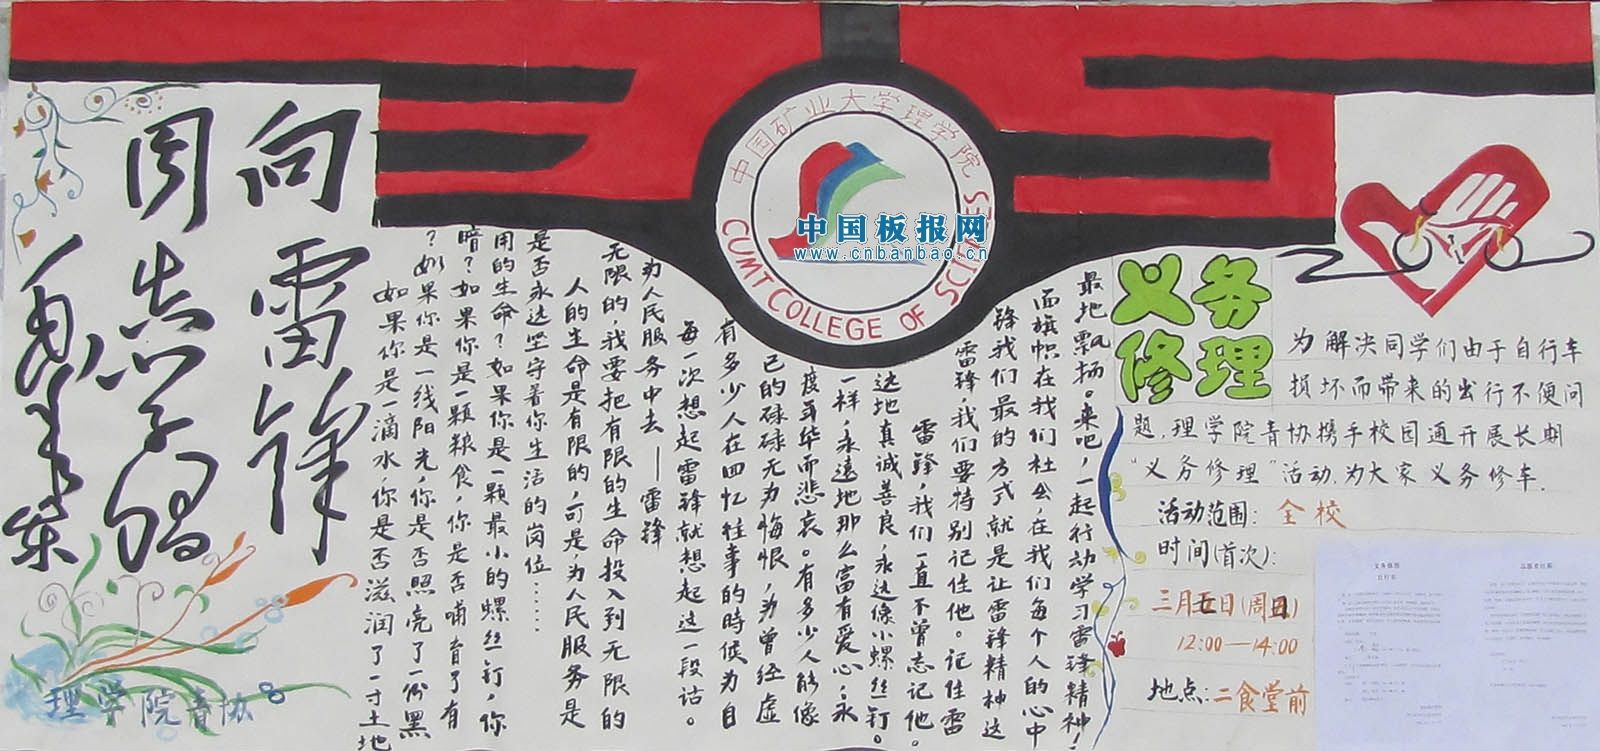 向雷锋
同志学习
毛泽东
理学院青协
中国矿业大学理学院
CUMT COLLEGE OF SCIENCES
中国板报网
www.cnbanbao.cn
如果你是一滴水,你是否滋润了一寸土地
?如果你是一线阳光,你是否照亮了一份黑
暗?如果你是一颗粮食,你是否哺育了有
用的生命?如果你是一颗最小的螺丝钉,你
是否永远坚守着你生活的岗位……
人的生命是有限的,可是,为人民服务是
无限的,我要把有限的生命投入到无限的
为人民服务中去——雷锋
每一次想起雷锋就想起这一段话。
有多少人在回忆往事的時候为自
己的碌碌无为悔恨,为曾经虚
度年华而悲哀。有多少人能像
一样,永远地那么富有爱心,永
远地真诚善良,永远像小螺丝钉。
雷锋,我们一直不曾忘记他。
雷锋,我们要特别记住他。记住雷
锋我们最的方式就是让雷锋精神这
面旗帜在我们社会,在我们每个人的心中
最地飘扬。来吧,一起行动学习雷锋精神!
义务
修理
为解决同学们由于自行车
损坏而带来的出行不便问
题,理学院青协携手校园通开展长期
“义务修理”活动,为大家义务修车.
活动范围:全校
时间(首次):
三月五日(周日)
12:00—14:00
地点:二食堂前